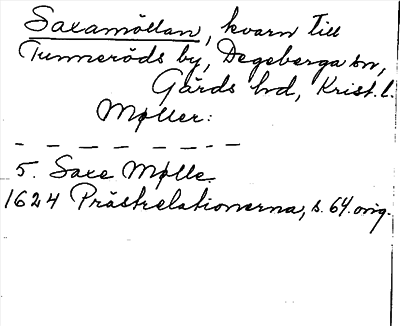 Saxamöllan, kvarn till
Tunneröds by, Degeberga sn,
Gärds hd, Krist. l.
Møller:
— — — — — — —
5. Saxe Mølle
1624 Prästrelationerna, s. 64. orig.